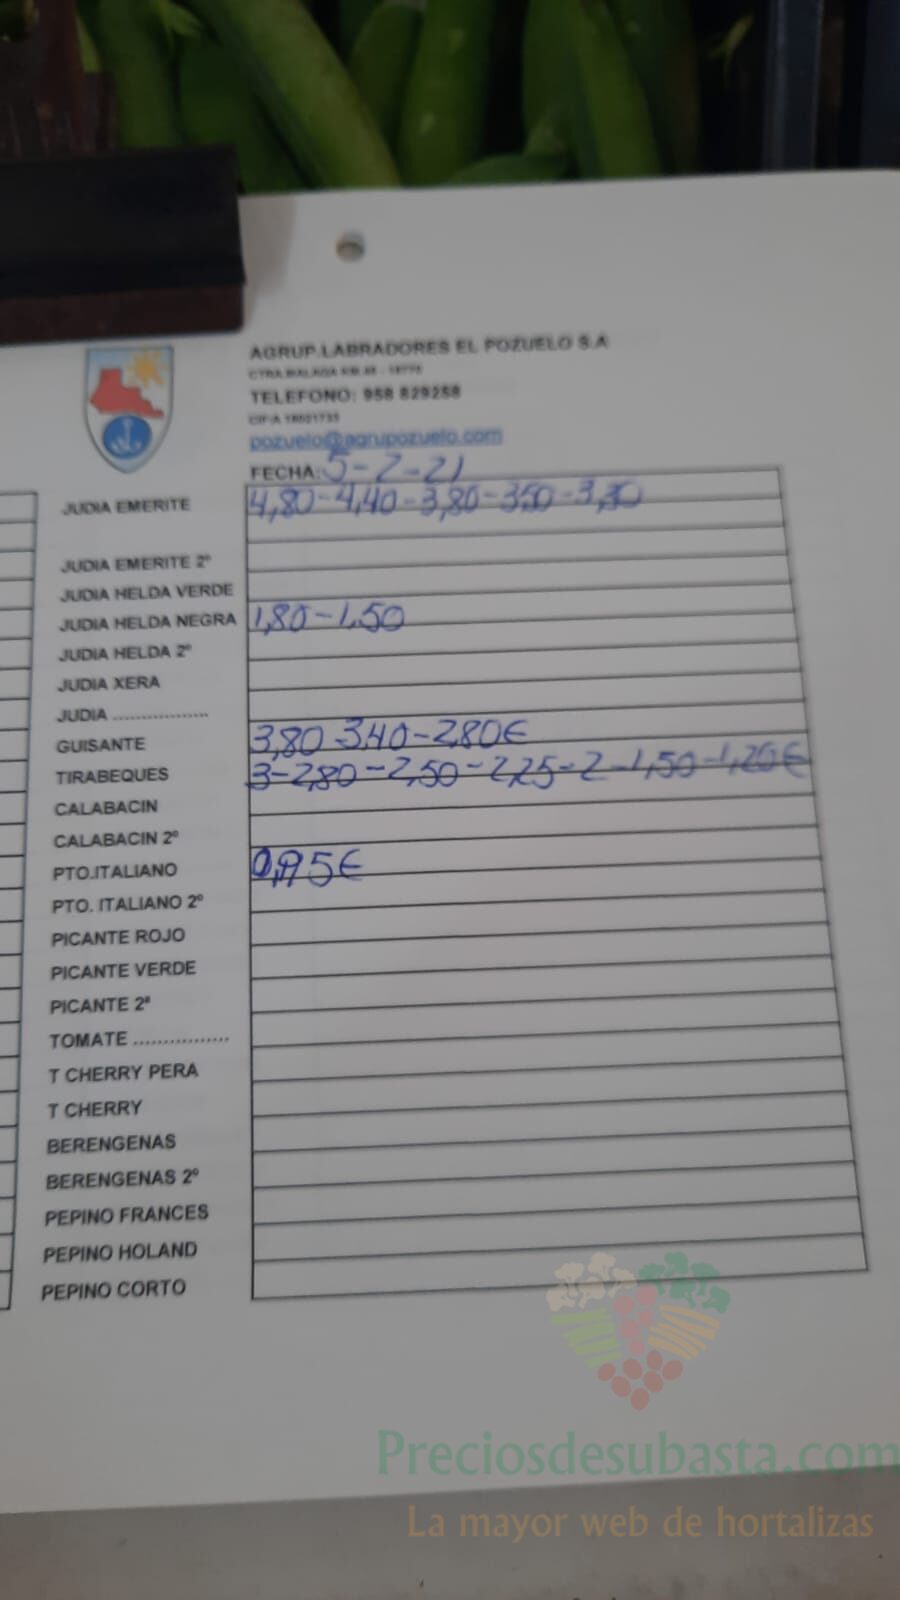 AGRUP.LABRADORES EL POZUELO S.A
TELEFONO: 958 829258
pozuelo@agrupozuelo.com
FECHA: 5-2-21
JUDIA EMERITE 4,80-4,40-3,80-3,50-3,30
JUDIA EMERITE 2º
JUDIA HELDA VERDE
JUDIA HELDA NEGRA 1,80-1,50
JUDIA HELDA 2º
JUDIA XERA
JUDIA ..................
GUISANTE 3,80 3,40-2,80€
TIRABEQUES 3-2,80-2,50-2,25-2-1,50-1,20€
CALABACIN
CALABACIN 2º
PTO.ITALIANO
PTO. ITALIANO 2º
PICANTE ROJO
PICANTE VERDE
PICANTE 2ª
TOMATE ................
T CHERRY PERA
T CHERRY
BERENGENAS
BERENGENAS 2º
PEPINO FRANCES
PEPINO HOLAND
PEPINO CORTO
Preciosdesubasta.com
La mayor web de hortalizas